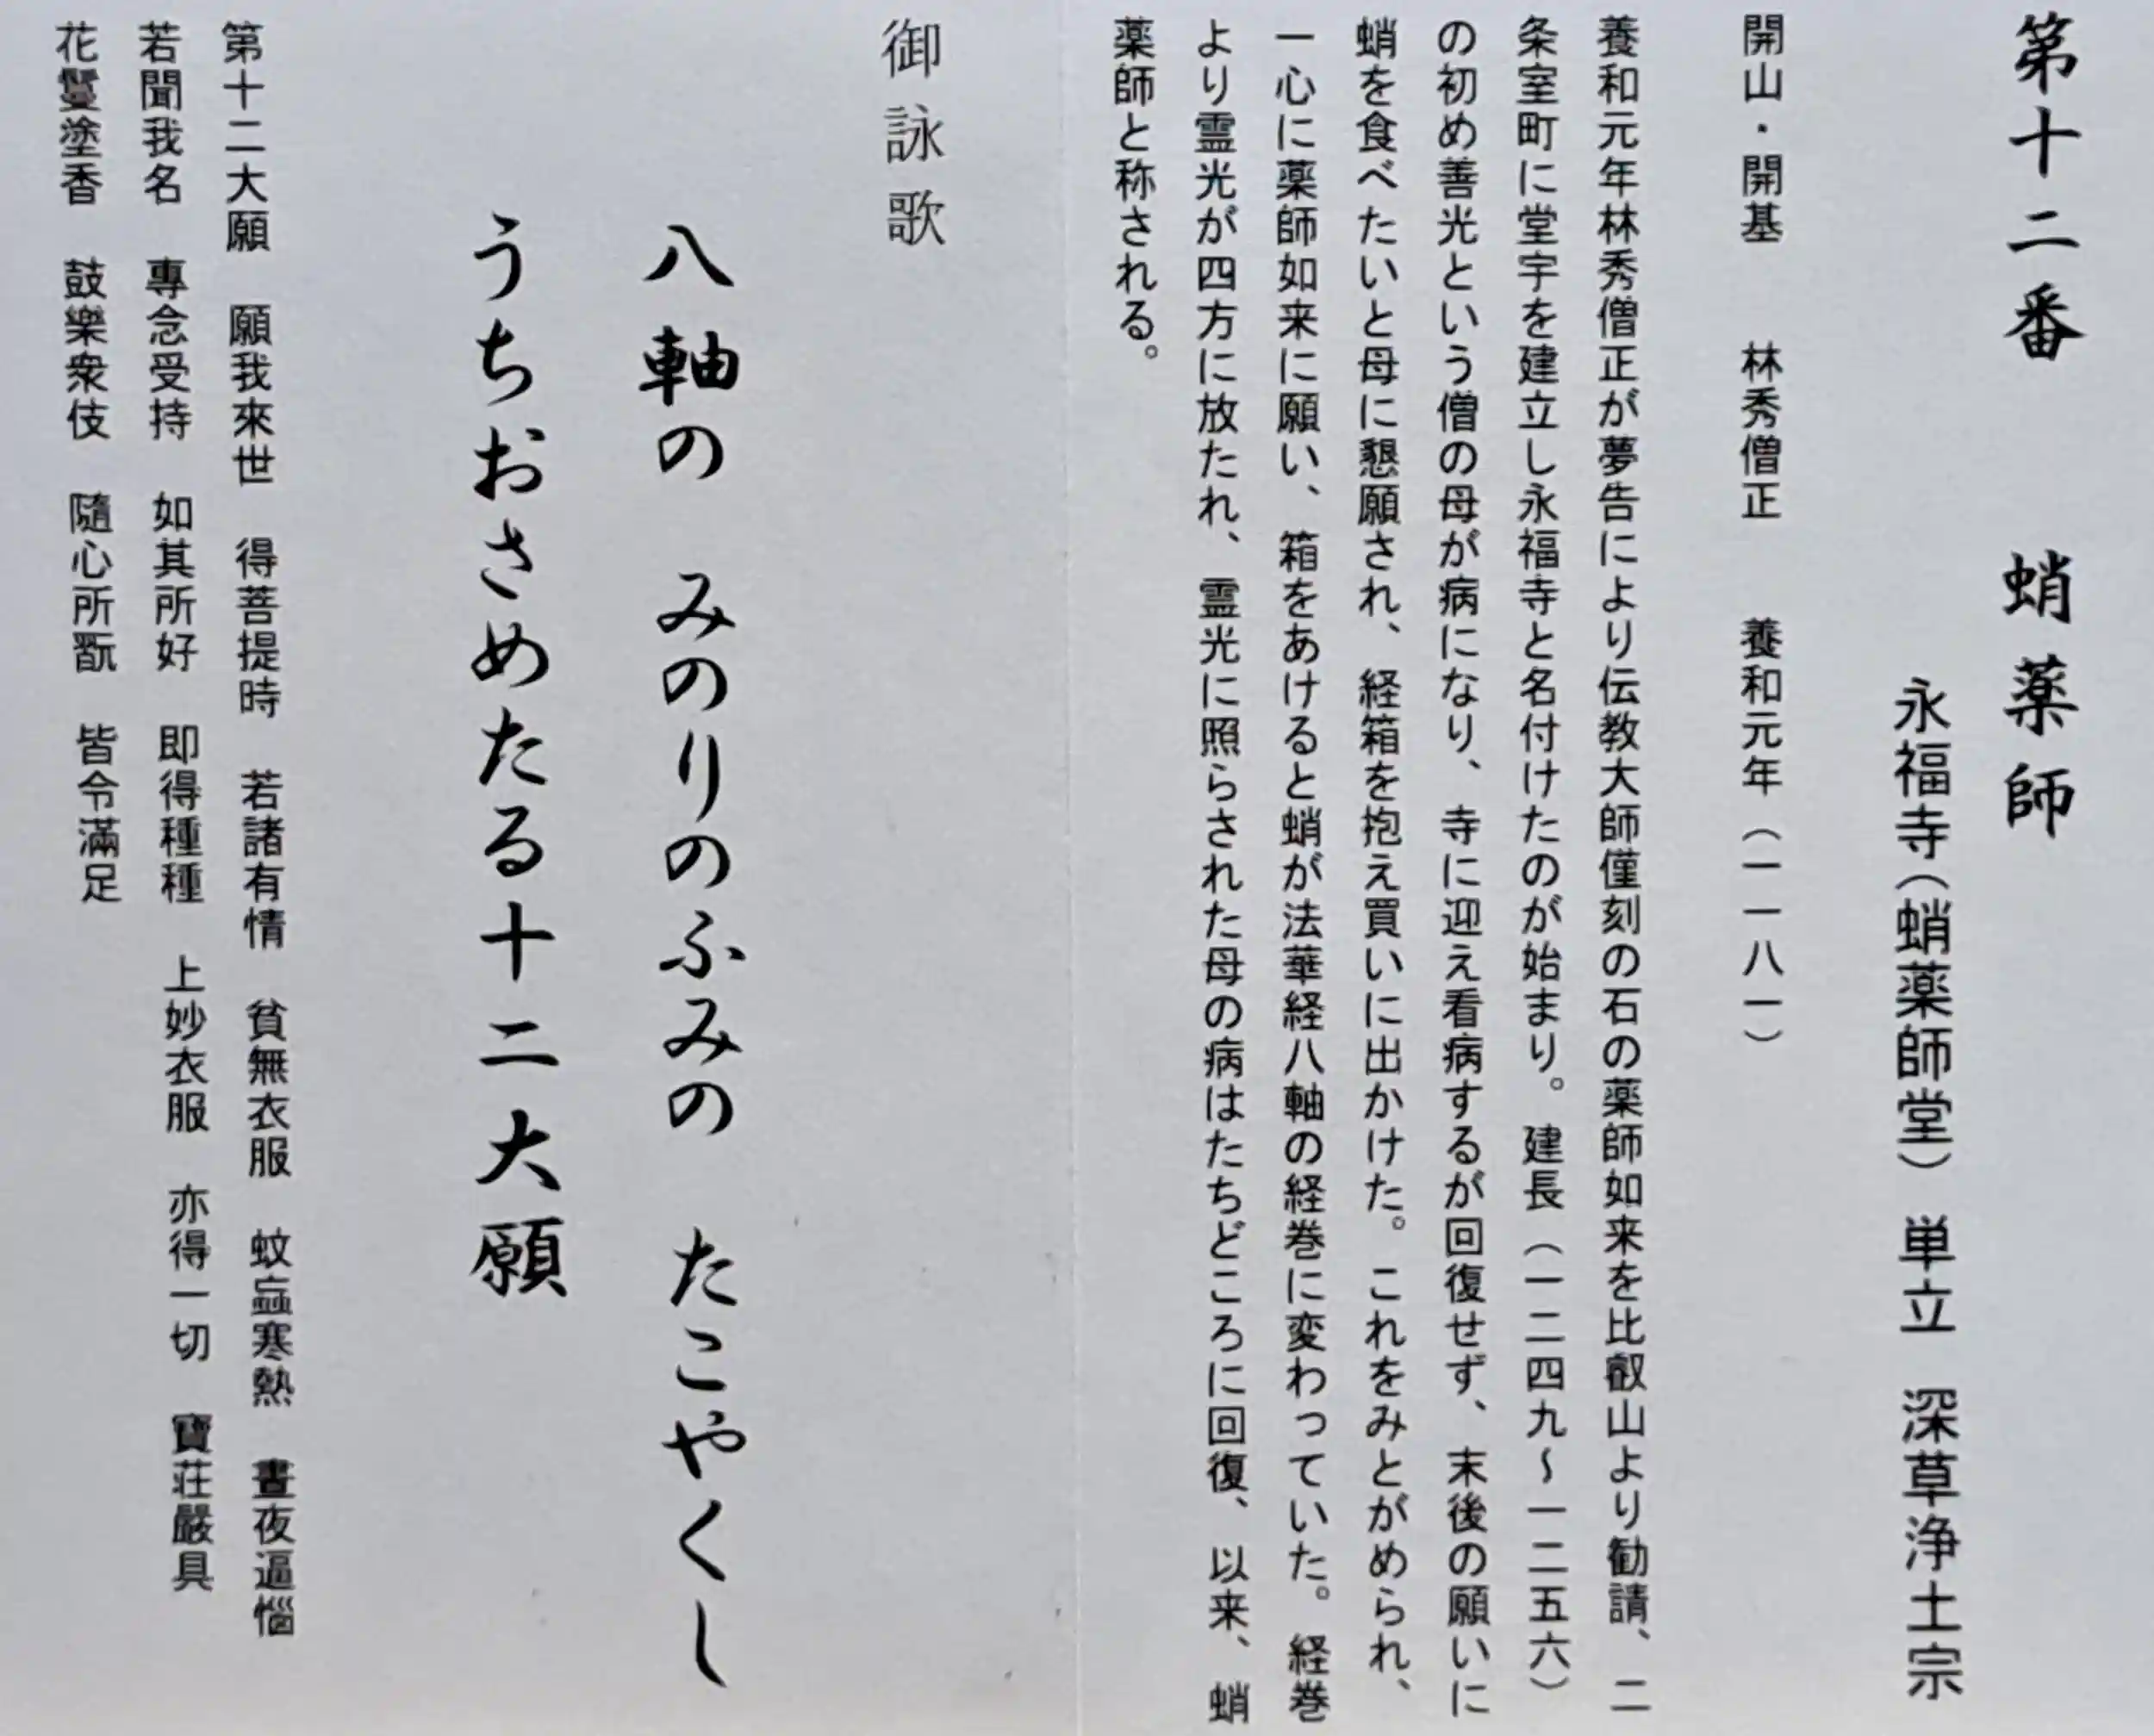 第十二番　蛸薬師
永福寺（蛸薬師堂）　単立　深草浄土宗
開山・開基　林秀僧正　養和元年（一一八一）
養和元年林秀僧正が夢告により伝教大師僅刻の石の薬師如来を比叡山より勧請、二
条室町に堂宇を建立し永福寺と名付けたのが始まり。建長（一二四九～一二五六）
の初め善光という僧の母が病になり、寺に迎え看病するが回復せず、末後の願いに
蛸を食べたいと母に懇願され、経箱を抱え買いに出かけた。これをみとがめられ、
一心に薬師如来に願い、箱をあけると蛸が法華経八軸の経巻に変わっていた。経巻
より霊光が四方に放たれ、霊光に照らされた母の病はたちどころに回復、以来、蛸
薬師と称される。
御詠歌
八軸の　みのりのふみの　たこやくし
うちおさめたる十二大願
第十二大願　願我來世　得菩提時　若諸有情　貧無衣服　蚊蝱寒熱　晝夜逼惱
若聞我名　專念受持　如其所好　即得種種　上妙衣服　亦得一切　寶莊嚴具
花鬘塗香　鼓樂衆伎　隨心所翫　皆令滿足